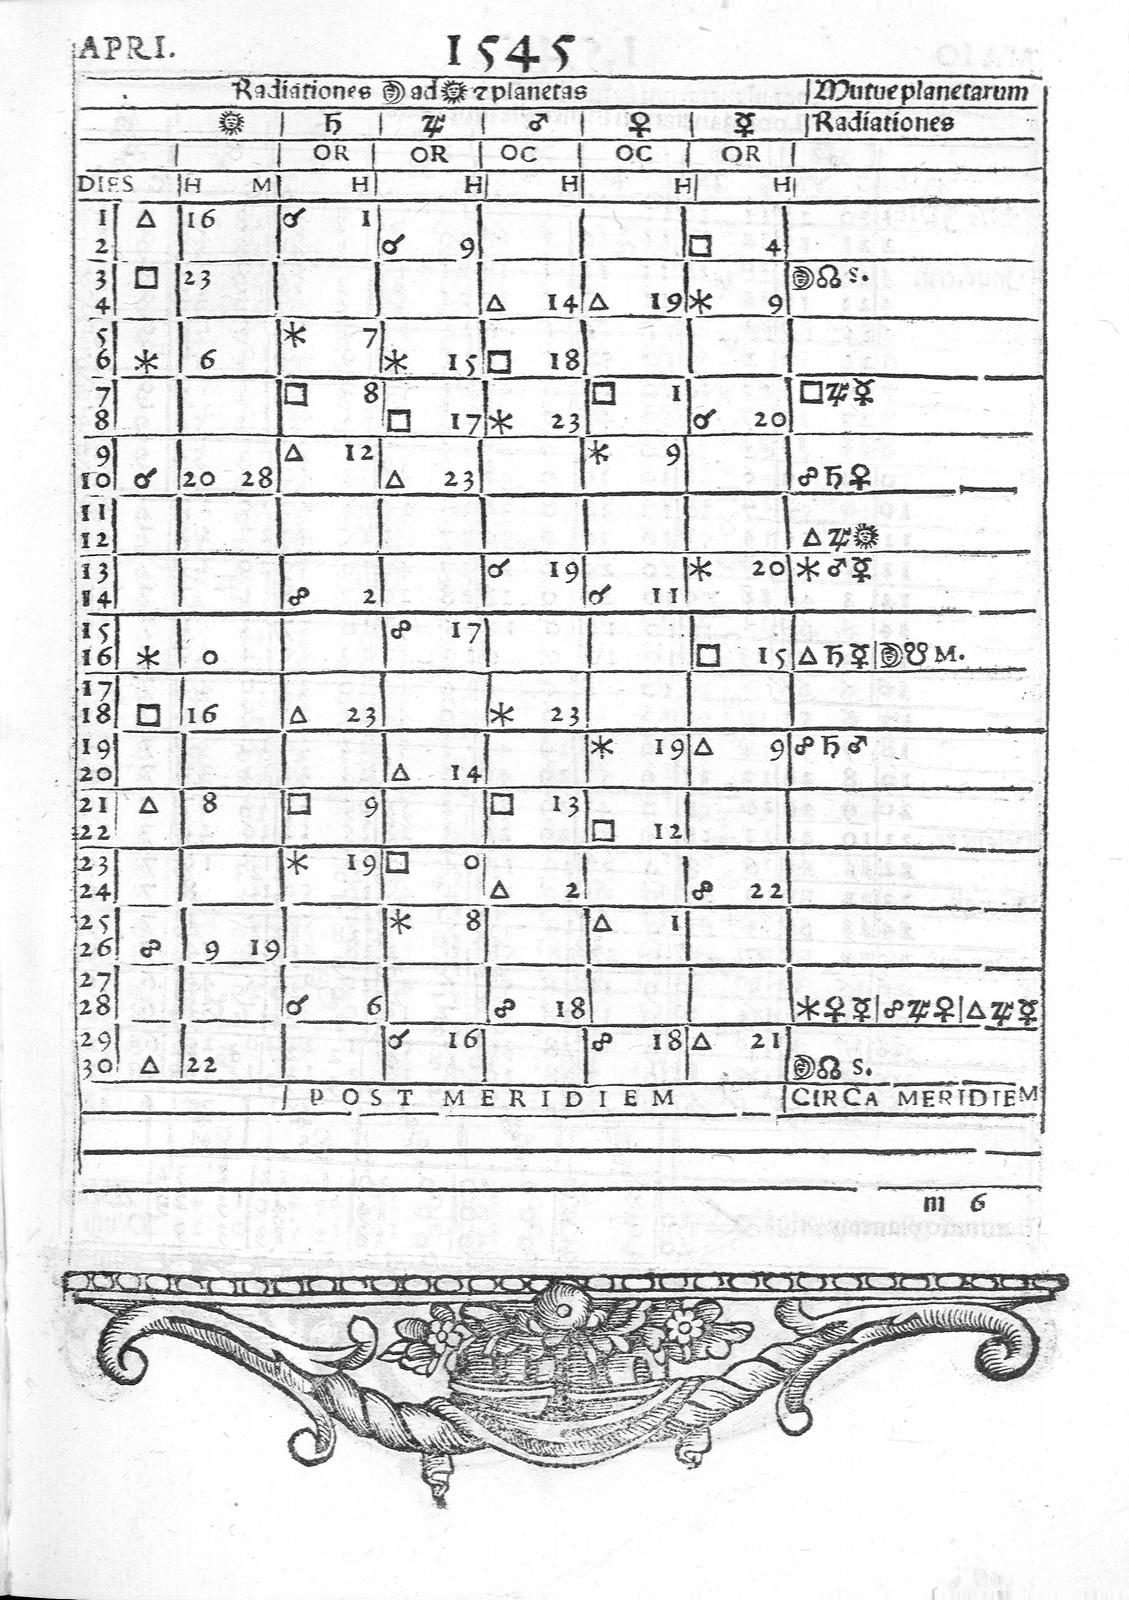 APRI. 1545
Radiationes ☽ ad ☉ & planetas | Mutue planetarum
☉ | ♄ | ♃ | ♂ | ♀ | ☿ | Radiationes
OR | OR | OC | OC | OR
DIES | H M | H | H | H | H | H
1 △ 16 ☌ 1
2 ☌ 9 □ 4
3 □ 23 ☽ ☊ S.
4 △ 14 △ 19 ⚹ 9
5 ⚹ 7
6 ⚹ 6 ⚹ 15 □ 18
7 □ 8 □ 1 □ ♃ ☿
8 □ 17 ⚹ 23 ☌ 20
9 △ 12 ⚹ 9
10 ☌ 20 28 △ 23 ☍ ♄ ♀
11
12 △ ♃ ☉
13 ☌ 19 ⚹ 20 ⚹ ♂ ☿
14 ☍ 2 ☌ 11
15 ☍ 17
16 ⚹ 0 □ 15 △ ♄ ☿ | ☽ ☋ M.
17
18 □ 16 △ 23 ⚹ 23
19 ⚹ 19 △ 9 ☍ ♄ ♂
20 △ 14
21 △ 8 □ 9 □ 13
22 □ 12
23 ⚹ 19 □ 0
24 △ 2 ☍ 22
25 ⚹ 8 △ 1
26 ☍ 9 19
27
28 ☌ 6 ☍ 18 ⚹ ♀ ☿ | ☍ ♃ ♀ | △ ♃ ☿
29 ☌ 16 ☍ 18 △ 21
30 △ 22 ☽ ☊ S.
POST MERIDIEM | CIRCA MERIDIEM
m 6